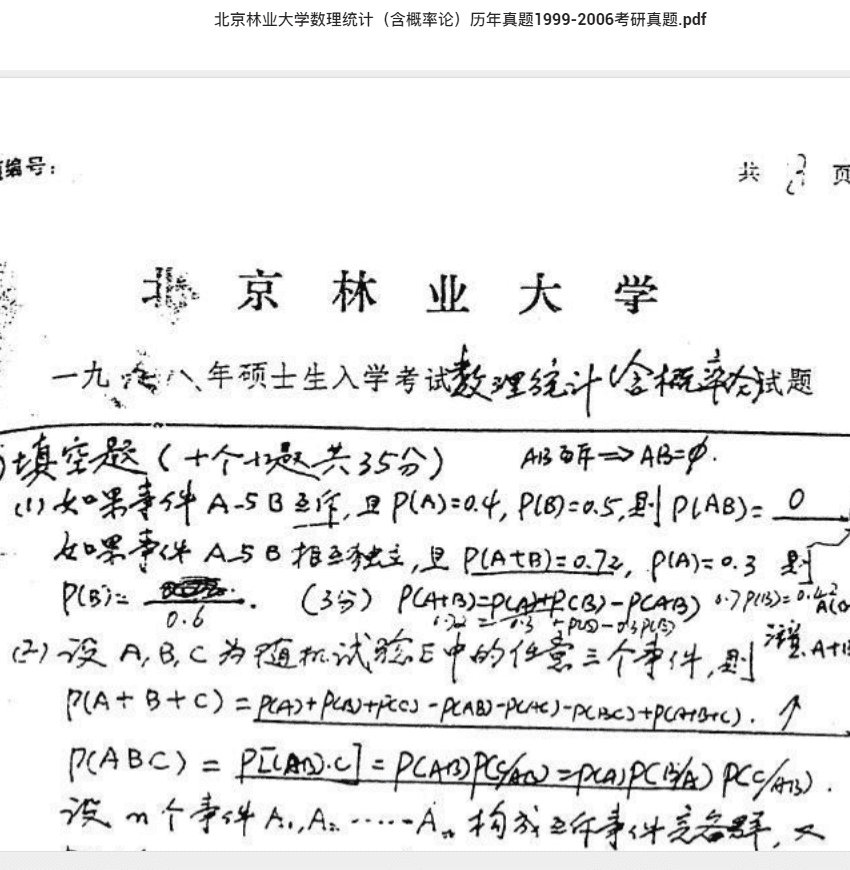 北京林业大学数理统计（含概率论）历年真题1999-2006考研真题.pdf
编号：
共 3 页
北京林业大学
一九九八年硕士生入学考试数理统计(含概率论)试题
填空题（十个小题共35分）
AB互斥⇒AB=φ.
(1) 如果事件A与B互斥,且P(A)=0.4, P(B)=0.5,则P(AB)= 0
如果事件A与B相互独立,且P(A+B)=0.72, P(A)=0.3 则
P(B)= 0.6 . (3分) P(A+B)=P(A)+P(B)-P(AB)
0.72 = 0.3 +P(B)-0.3P(B)
0.7P(B)=0.42
(2) 设A,B,C为随机试验E中的任意三个事件,则
注意 A+B
P(A+B+C)=P(A)+P(B)+P(C)-P(AB)-P(AC)-P(BC)+P(A+B+C).
P(ABC) = P[(AB)·C]=P(AB)P(C/AB)=P(A)P(B/A)P(C/AB).
设n个事件A₁,A₂ ······Aₙ 构成互斥事件完备群,又